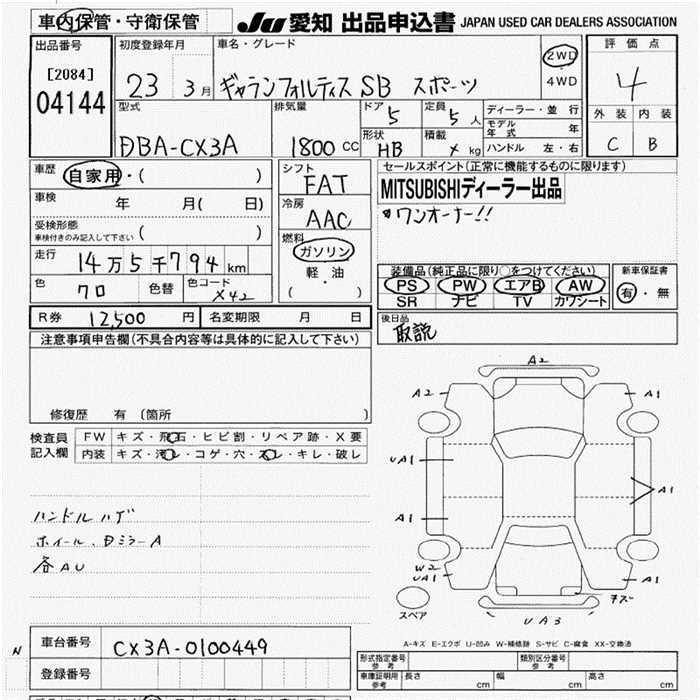 車内保管・守衛保管
JU 愛知 出品申込書 JAPAN USED CAR DEALERS ASSOCIATION
出品番号
[2084]
04144
初度登録年月
23 3月
車名・グレード
ギャランフォルティス SB スポーツ
2WD
4WD
評価点
4
外装 内装
C B
型式
DBA-CX3A
排気量
1800 CC
ドア 5
定員 5人
形状 HB
積載 kg
ディーラー・並行
モデル年式 年
ハンドル 左・右
車歴 自家用・( )
車検 年 月( 日)
受検形態
車検付きのみ記入して下さい ( )
走行 14万5千794km
色 クロ 色替 色コード X42
シフト
FAT
冷房
AAC
燃料
ガソリン
軽・油
( )
セールスポイント(正常に機能するものに限ります)
MITSUBISHIディーラー出品
ワンオーナー!!
装備品(純正品に限り○をつけてください)
PS PW エアB AW
SR ナビ TV カワシート
新車保証書
有・無
R券 12,500 円 名変期限 月 日
後日品
取説
注意事項申告欄(不具合内容等は具体的に記入して下さい)
修復歴 有 (箇所 )
検査員記入欄
FW キズ・飛石・ヒビ割・リペア跡・X要
内装 キズ・汚レ・コゲ・穴・スレ・キレ・破レ
ハンドルハゲ
ホイール、Dミラー A
各AU
A2
A2
A1
UA1
A1
A1
W2
UA1
A1
スペア
UA3
A-キズ E-エクボ U-凹み W-補修跡 S-サビ C-腐食 XX-交換済
N
車台番号 CX3A-0100449
登録番号
形式指定番号 参考
類別区分番号 参考
車庫証明用 参考 長さ cm 幅 cm 高さ cm